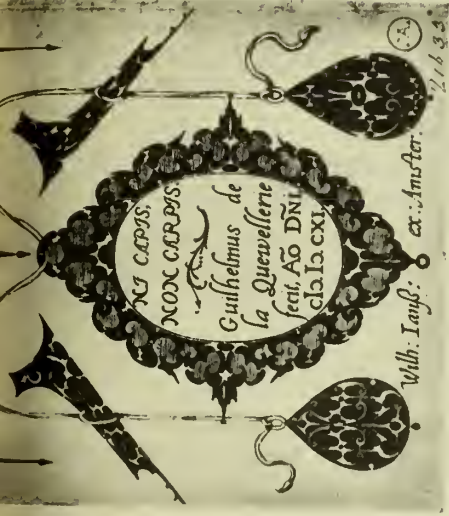 NI CAPIS,
NON CARPIS.
Guilhelmus de
la Quewellerie
fecit, Aō DN̄I
cIɔ.Iɔ.CXI.
Wilh: Ianß: ex. Amster.
.A.